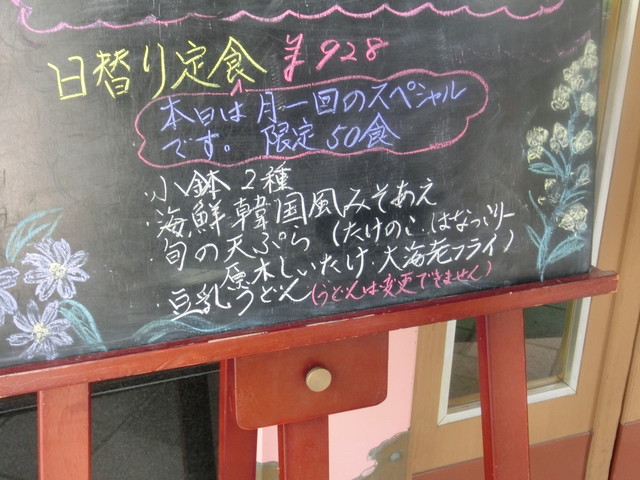 日替り定食 ¥928
本日は月一回のスペシャル
です。 限定50食
・小鉢2種
・海鮮韓国風みそあえ
・旬の天ぷら(たけのこ、はなっコリー
原木しいたけ・大海老フライ)
・豆乳うどん(うどんは変更できません)